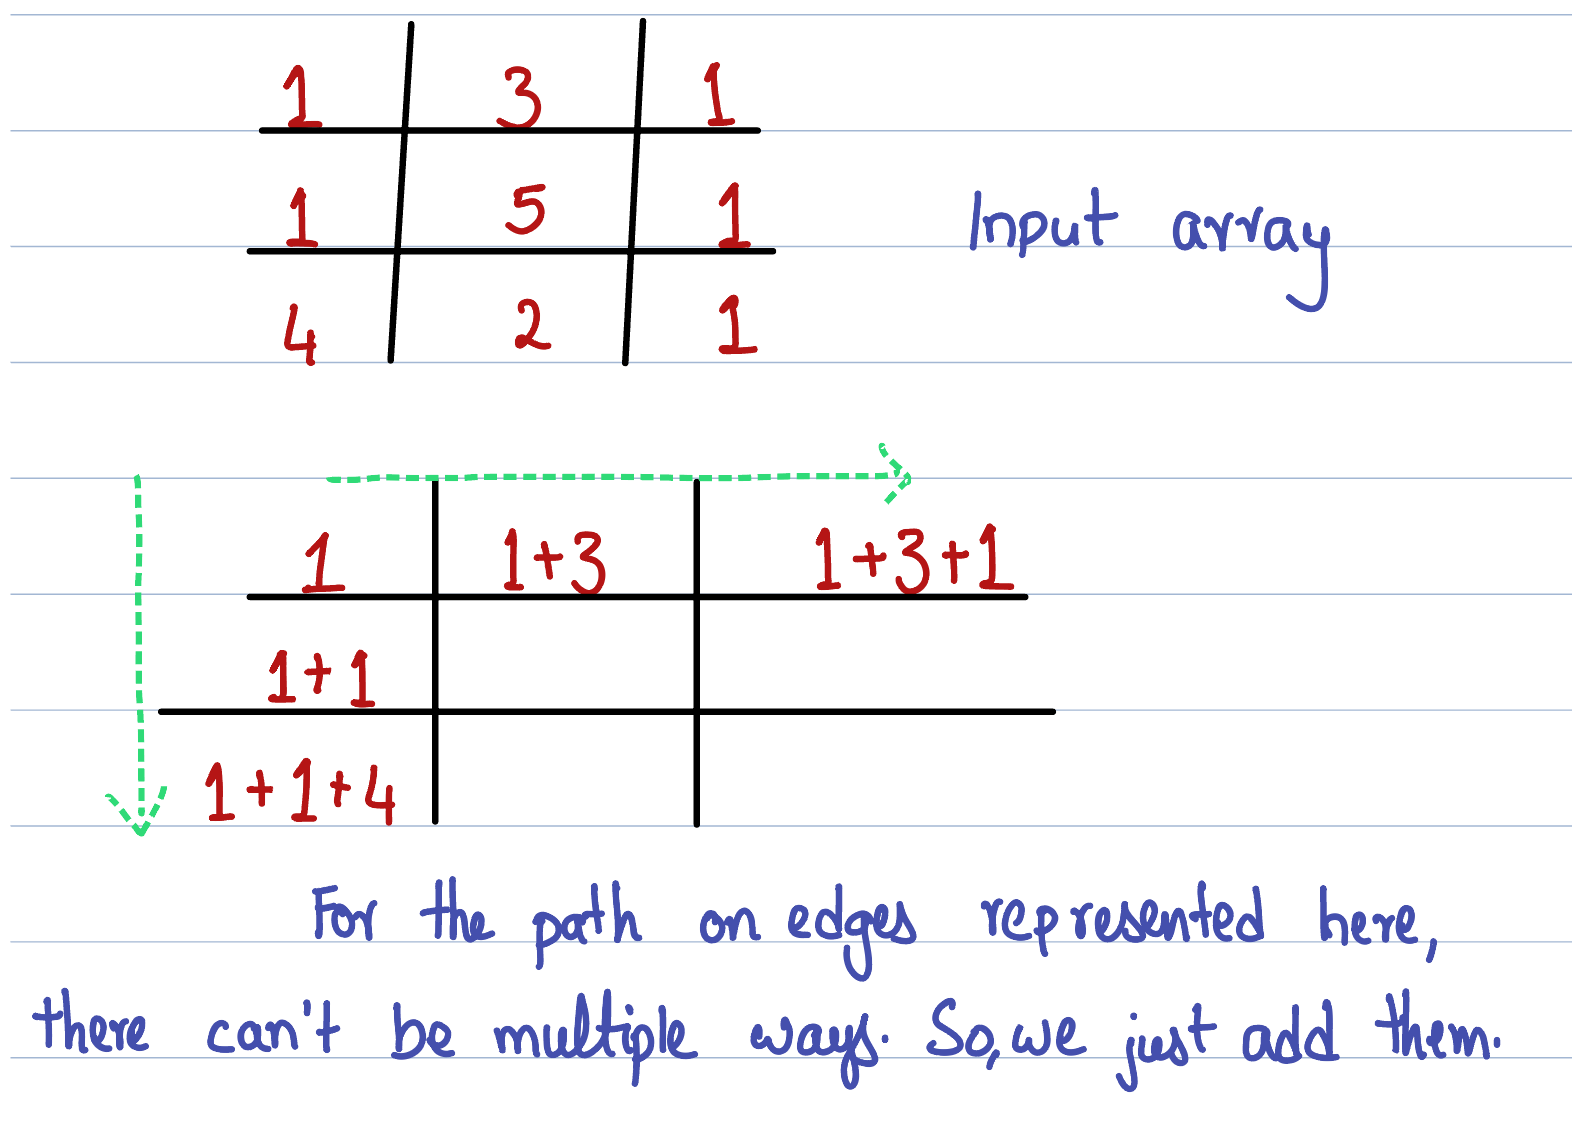 1 3 1
1 5 1
Input array
4 2 1
1 1+3 1+3+1
1+1
1+1+4
For the path on edges represented here,
there can't be multiple ways. So, we just add them.